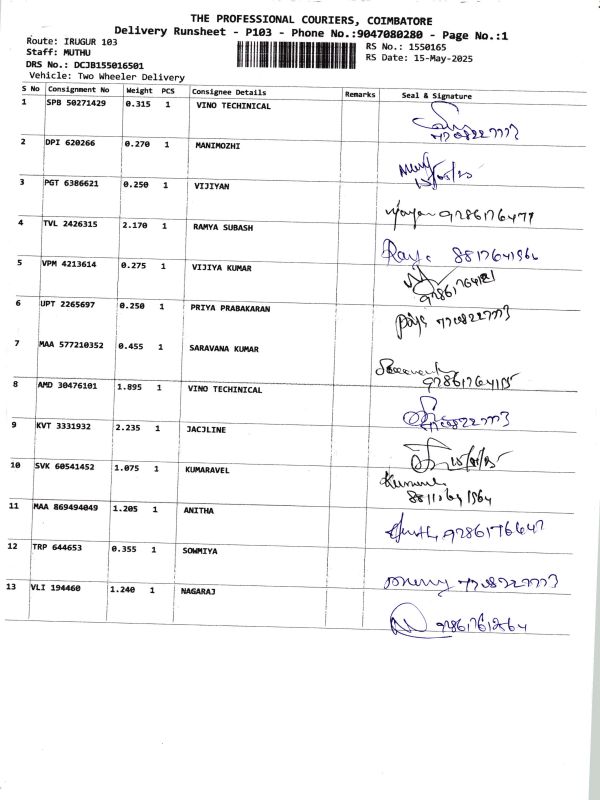 THE PROFESSIONAL COURIERS, COIMBATORE
Delivery Runsheet - P103 - Phone No.:9047080280 - Page No.:1
Route: IRUGUR 103
Staff: MUTHU
DRS No.: DCJB155016501
Vehicle: Two Wheeler Delivery
RS No.: 1550165
RS Date: 15-May-2025
S No Consignment No Weight PCS Consignee Details Remarks Seal & Signature
1 SPB 50271429 0.315 1 VINO TECHINICAL
2 DPI 620266 0.270 1 MANIMOZHI
3 PGT 6386621 0.250 1 VIJIYAN
4 TVL 2426315 2.170 1 RAMYA SUBASH
5 VPM 4213614 0.275 1 VIJIYA KUMAR
6 UPT 2265697 0.250 1 PRIYA PRABAKARAN
7 MAA 577210352 0.455 1 SARAVANA KUMAR
8 AMD 30476101 1.895 1 VINO TECHINICAL
9 KVT 3331932 2.235 1 JACJLINE
10 SVK 60541452 1.075 1 KUMARAVEL
11 MAA 869494049 1.205 1 ANITHA
12 TRP 644653 0.355 1 SOWMIYA
13 VLI 194460 1.240 1 NAGARAJ